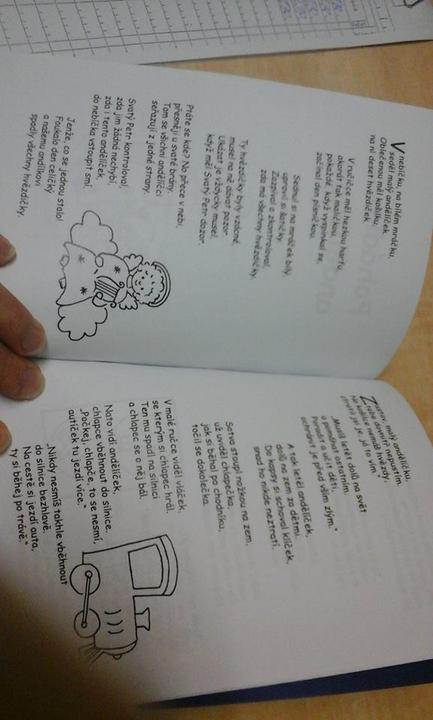 V nebíčku, na bílém mráčku,
seděl malý andělíček.
Oblečenou měl košilku,
na ní deset hvězdiček.
V ručičce měl hezkou harfu,
akorát tak maličkou,
pokaždé, když vyspinkal se,
začínal den písničkou.
Sednul si na mráček bílý,
upravil si vlasičky.
Zazpíval a zkontroloval,
zda má všechny hvězdičky.
Ty hvězdičky byly vzácné,
musel na ně dávat pozor.
Ukázat je vždycky musel,
když měl Svatý Petr dozor.
Ptáte se kde? No přece v nebi,
přesněji u svaté brány.
Tam se všichni andělíčci
seřazují z jedné strany.
Svatý Petr kontroloval,
zda jim žádná nechybí,
zda i tento andělíček,
do nebíčka vstoupit smí.
Jenže, co se jednou stalo!
Foukalo den celičký
a našemu andílkovi
spadly všechny hvězdičky.
malý andělíčku,
Musíš letět dolů na svět
a pomáhat ostatním.
Poradit a učit děti,
ochránit je před vším zlým."
A tak letěl andělíček
dolů na zem za dětmi.
Do kapsy si schoval klíček,
snad ho nikde neztratí.
Sotva stoupl nožkou na zem,
už uviděl chlapečka,
jak si běhal po chodníku,
točil se dokolečka.
V malé ručce viděl vláček,
se kterým si chlapec hrál.
Ten mu spadl na silnici
a chlapec se o něj bál.
Nato vidí andělíček
chlapce vběhnout do silnice.
„Počkej, chlapče, to se nesmí,
autíček tu jezdí více."
„Nikdy nesmíš takhle vběhnout
do silnice bezhlavě.
Na cestě si jezdí auta,
ty si běhej po trávě."